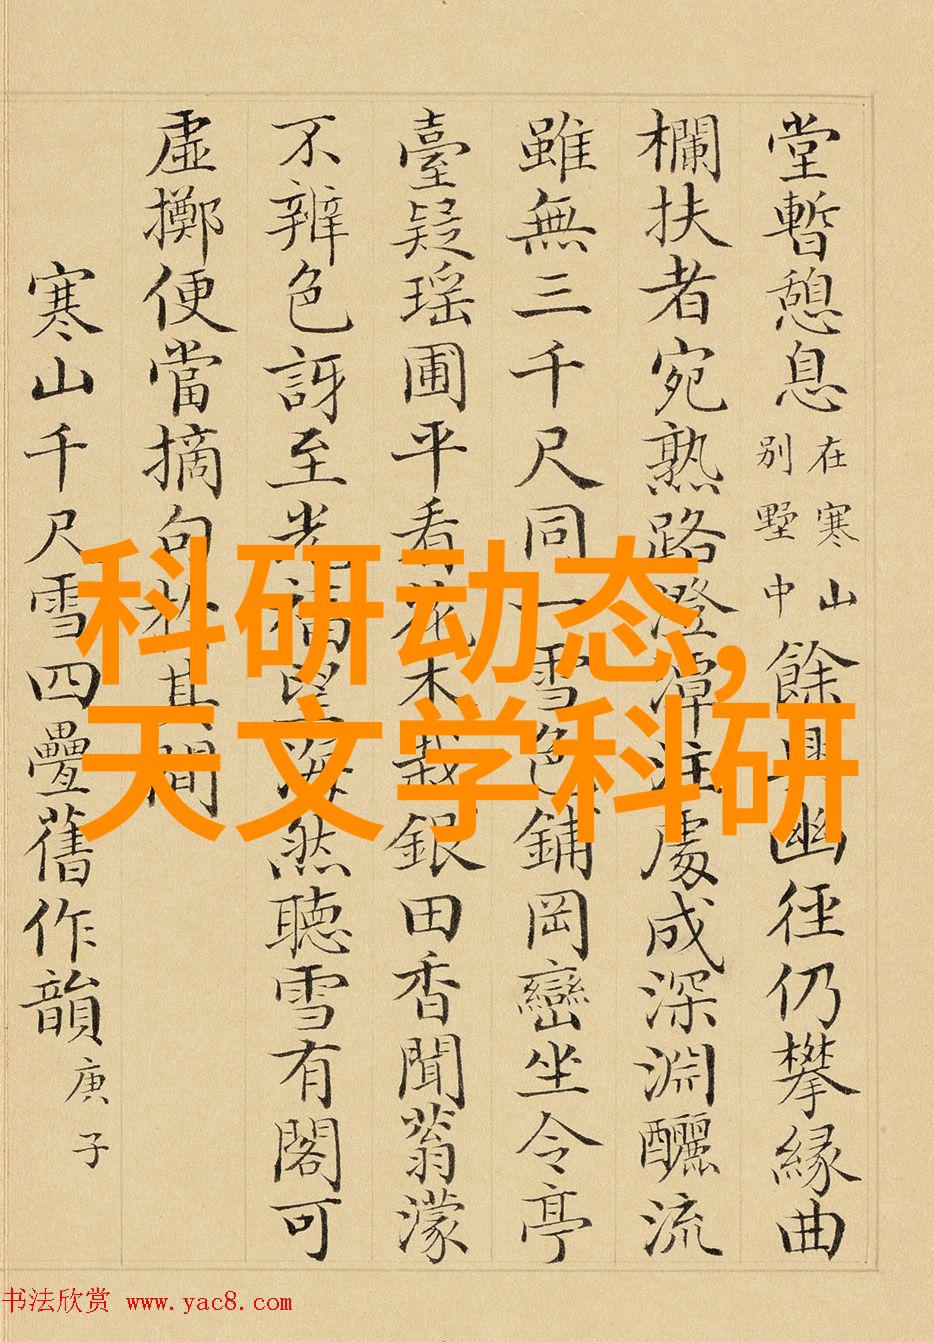 堂暫憩息在寒山別墅中餘興幽徑仍攀緣曲
欄扶者宛熟路澄潭注處成深淵釃流
雖無三千尺同一雪色鋪岡巒坐令亭
臺疑瑶圃平看花木栽銀田香聞蓊濛
不辨色訝至光福望海然聽雪有閣可
虛擲便當摘句於其間
寒山千尺雪四疊舊作韻庚子
科研动态,
天文学科研
书法欣赏 www.yac8.com